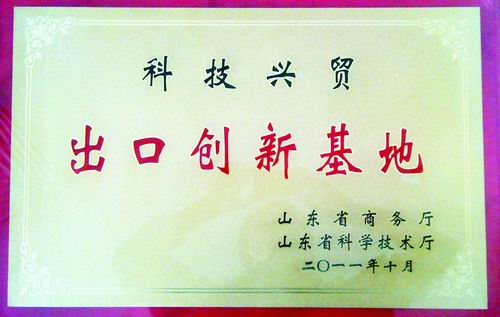 科技兴贸
出口创新基地
山东省商务厅
山东省科学技术厅
二〇一一年十月